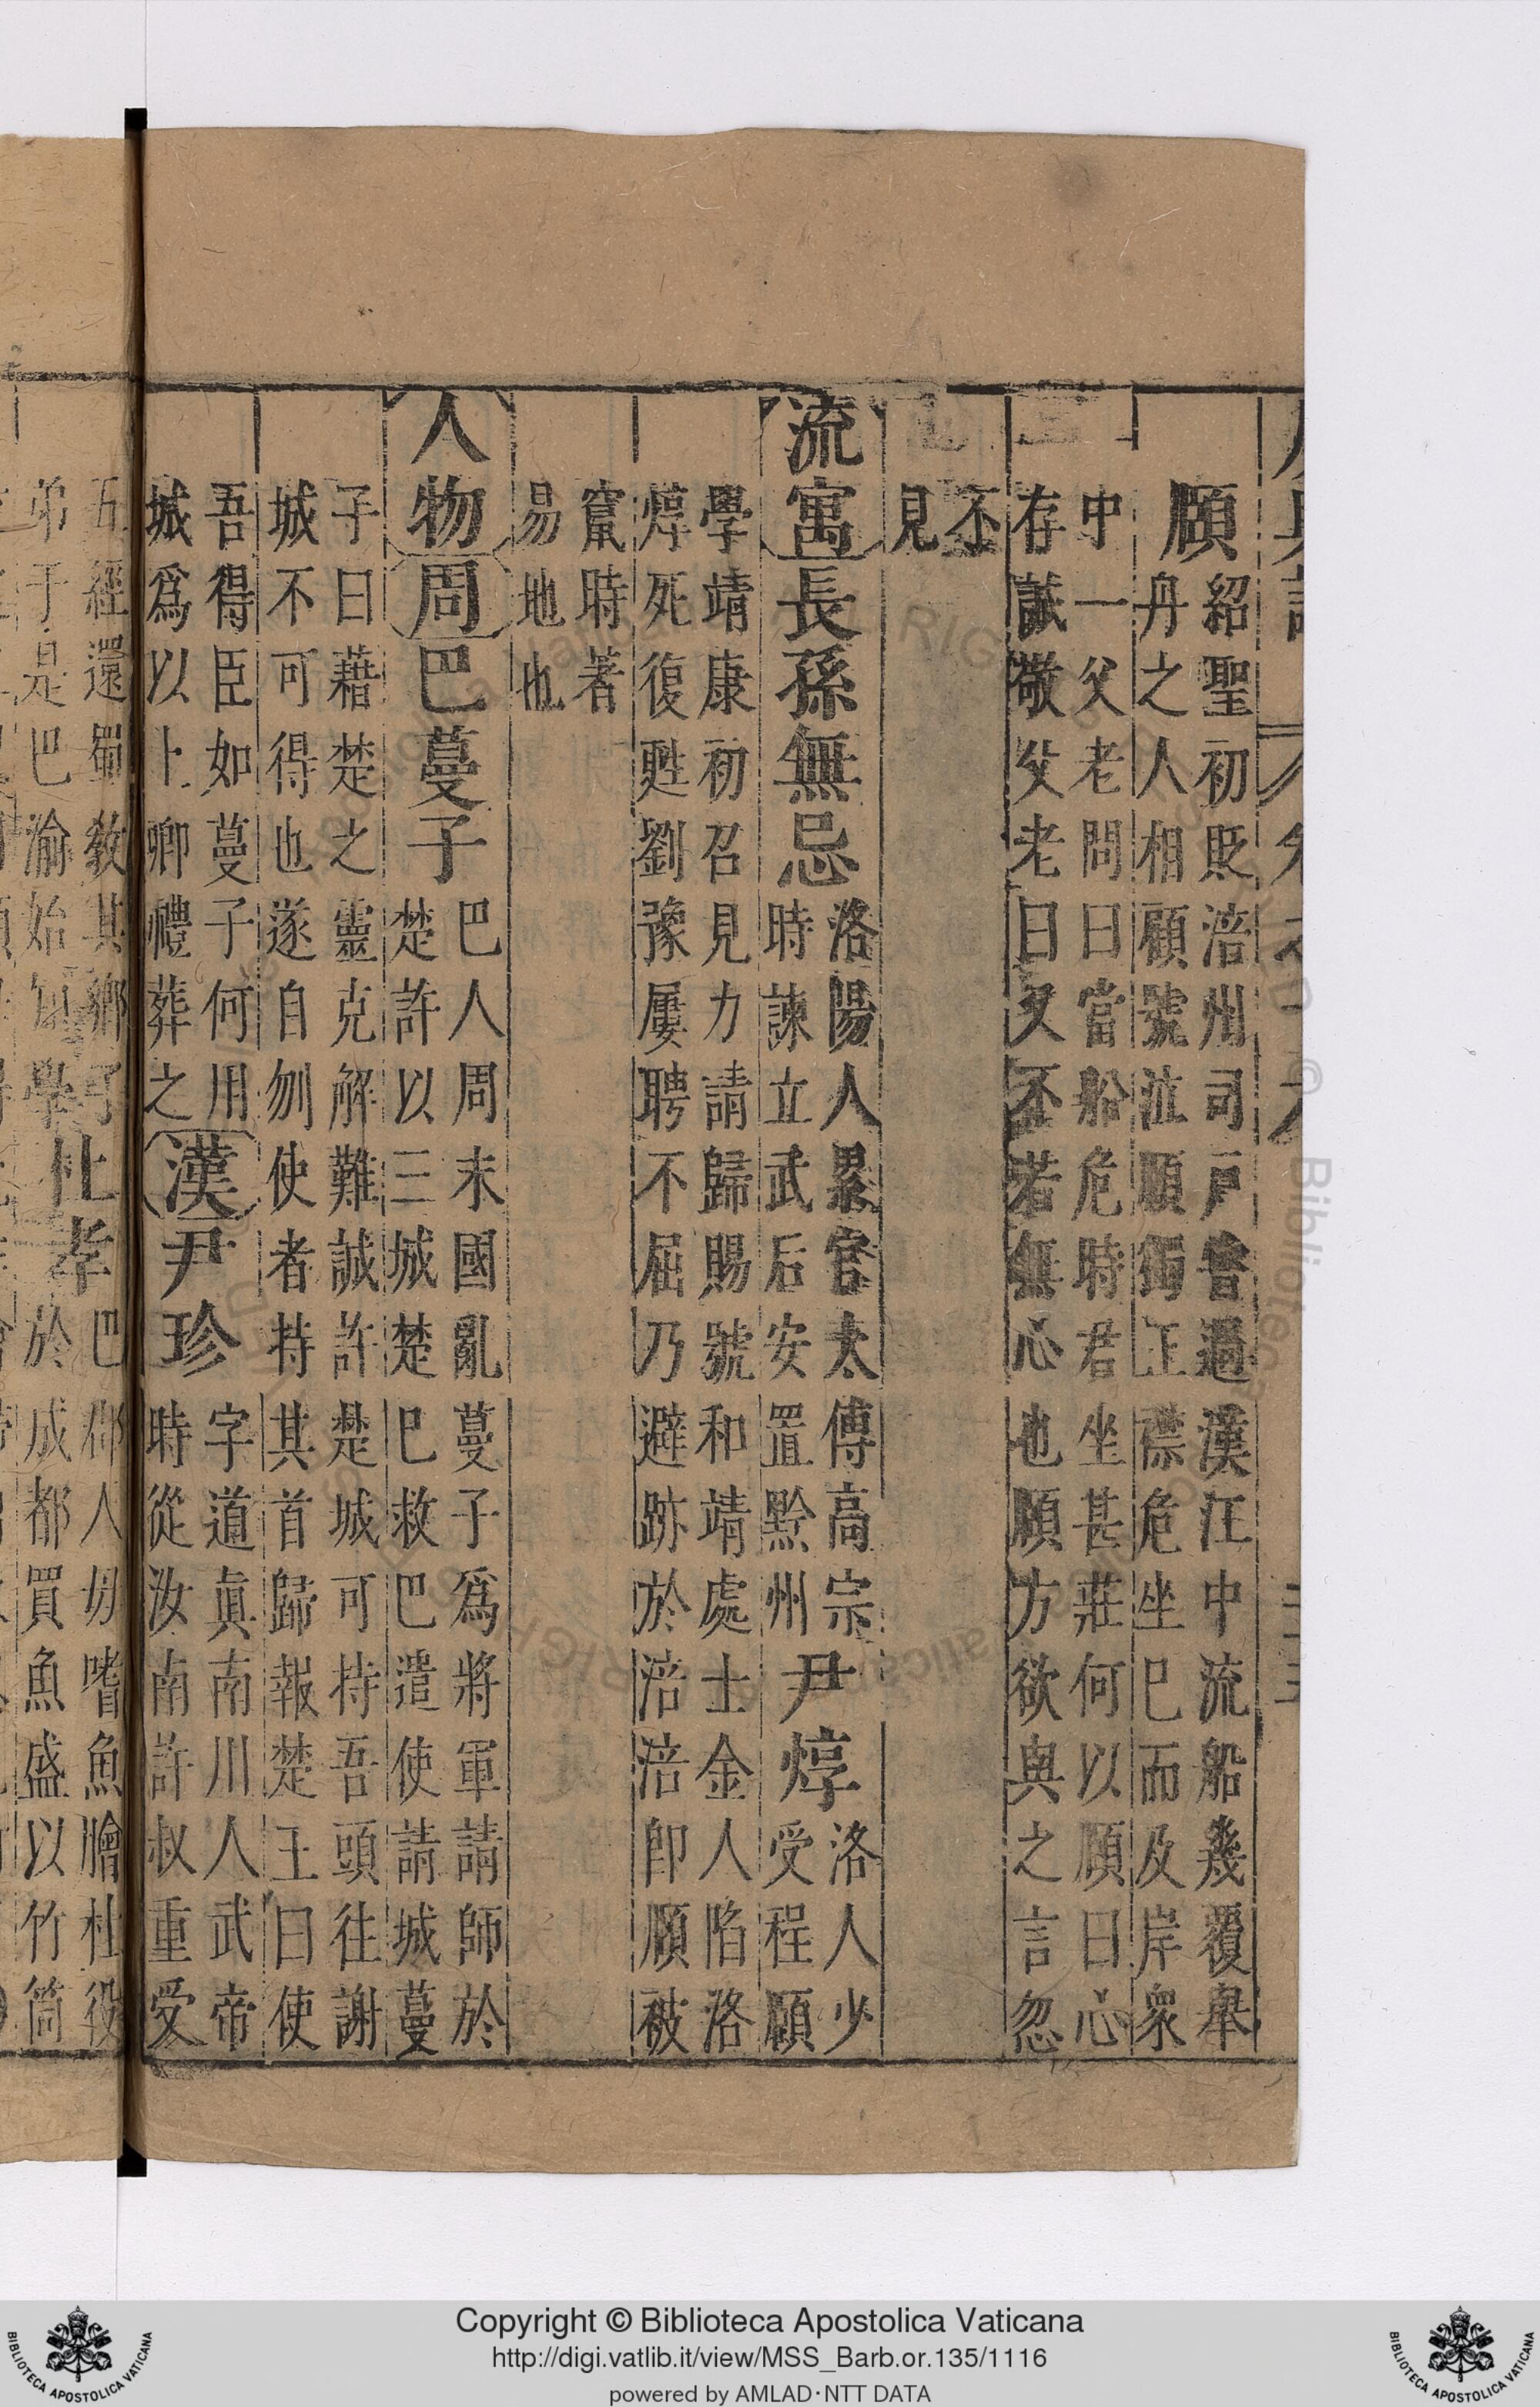 頤紹聖初貶涪州司戶嘗過漢江中流船幾覆舉
丹之人相顧號泣頤獨正襟危坐巳而及岸衆
中一父老問曰當船危時君坐甚莊何以頤曰心
存誠敬父老曰又丕若無心也頤方欲與之言忽
不
見
流寓長孫無忌洛陽人累官太傅高宗
時諫立武后安置黔州尹焞洛人少
受程頤
學靖康初召見力請歸賜號和靖處士金人陷洛
焞死復甦劉豫屢聘不屈乃避跡於涪涪卽頤被
竄時著
易地也
人物周巴蔓子巴人周末國亂蔓子爲將軍請師於
楚許以三城楚巳救巴遣使請城蔓
子曰藉楚之靈克解難誠許楚城可持吾頭往謝
城不可得也遂自刎使者持其首歸報楚王曰使
吾得臣如蔓子何用
城爲以上卿禮葬之漢尹珍字道眞南川人武帝
時從汝南許叔重受
五經還蜀教其鄉
弟于是巴渝始知學杜孝巴郡人毋嗜魚膾杜役
於成都買魚盛以竹筒
Copyright © Biblioteca Apostolica Vaticana
http://digi.vatlib.it/view/MSS_Barb.or.135/1116
powered by AMLAD·NTT DATA
BIBLIOTECA APOSTOLICA VATICANA
BIBLIOTECA APOSTOLICA VATICANA